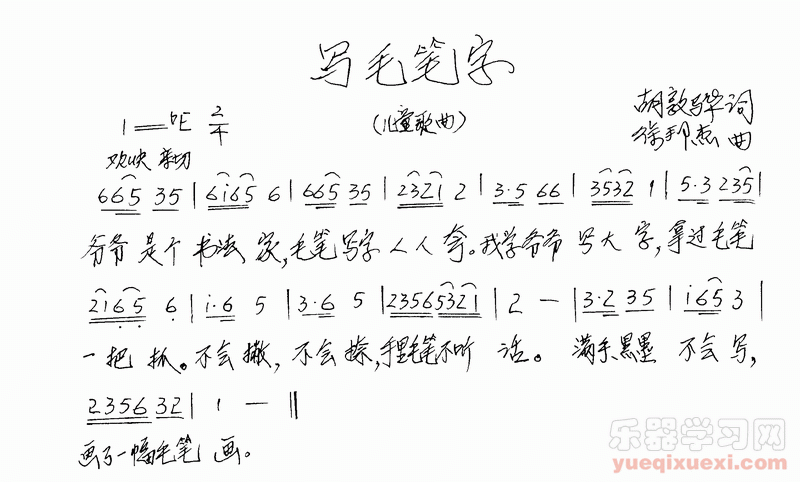 写毛笔字
1=♭E 2/4
(儿童歌曲)
胡敦骅词
徐邦杰曲
欢快 亲切
665 35 | 6i65 6 | 665 35 | 2321 2 | 3·5 66 | 3532 1 | 5·3 235 |
爷爷是个书法家,毛笔写字人人夸。我学爷爷写大字,拿过毛笔
2165 6 | i·6 5 | 3·6 5 | 23565321 | 2 — | 3·2 35 | i65 3 |
一把抓。不会撇,不会捺,手里毛笔不听话。满手黑墨不会写,
2356 32 | 1 — ‖
画了一幅毛笔画。
乐器学习网
yueqixuexi.com